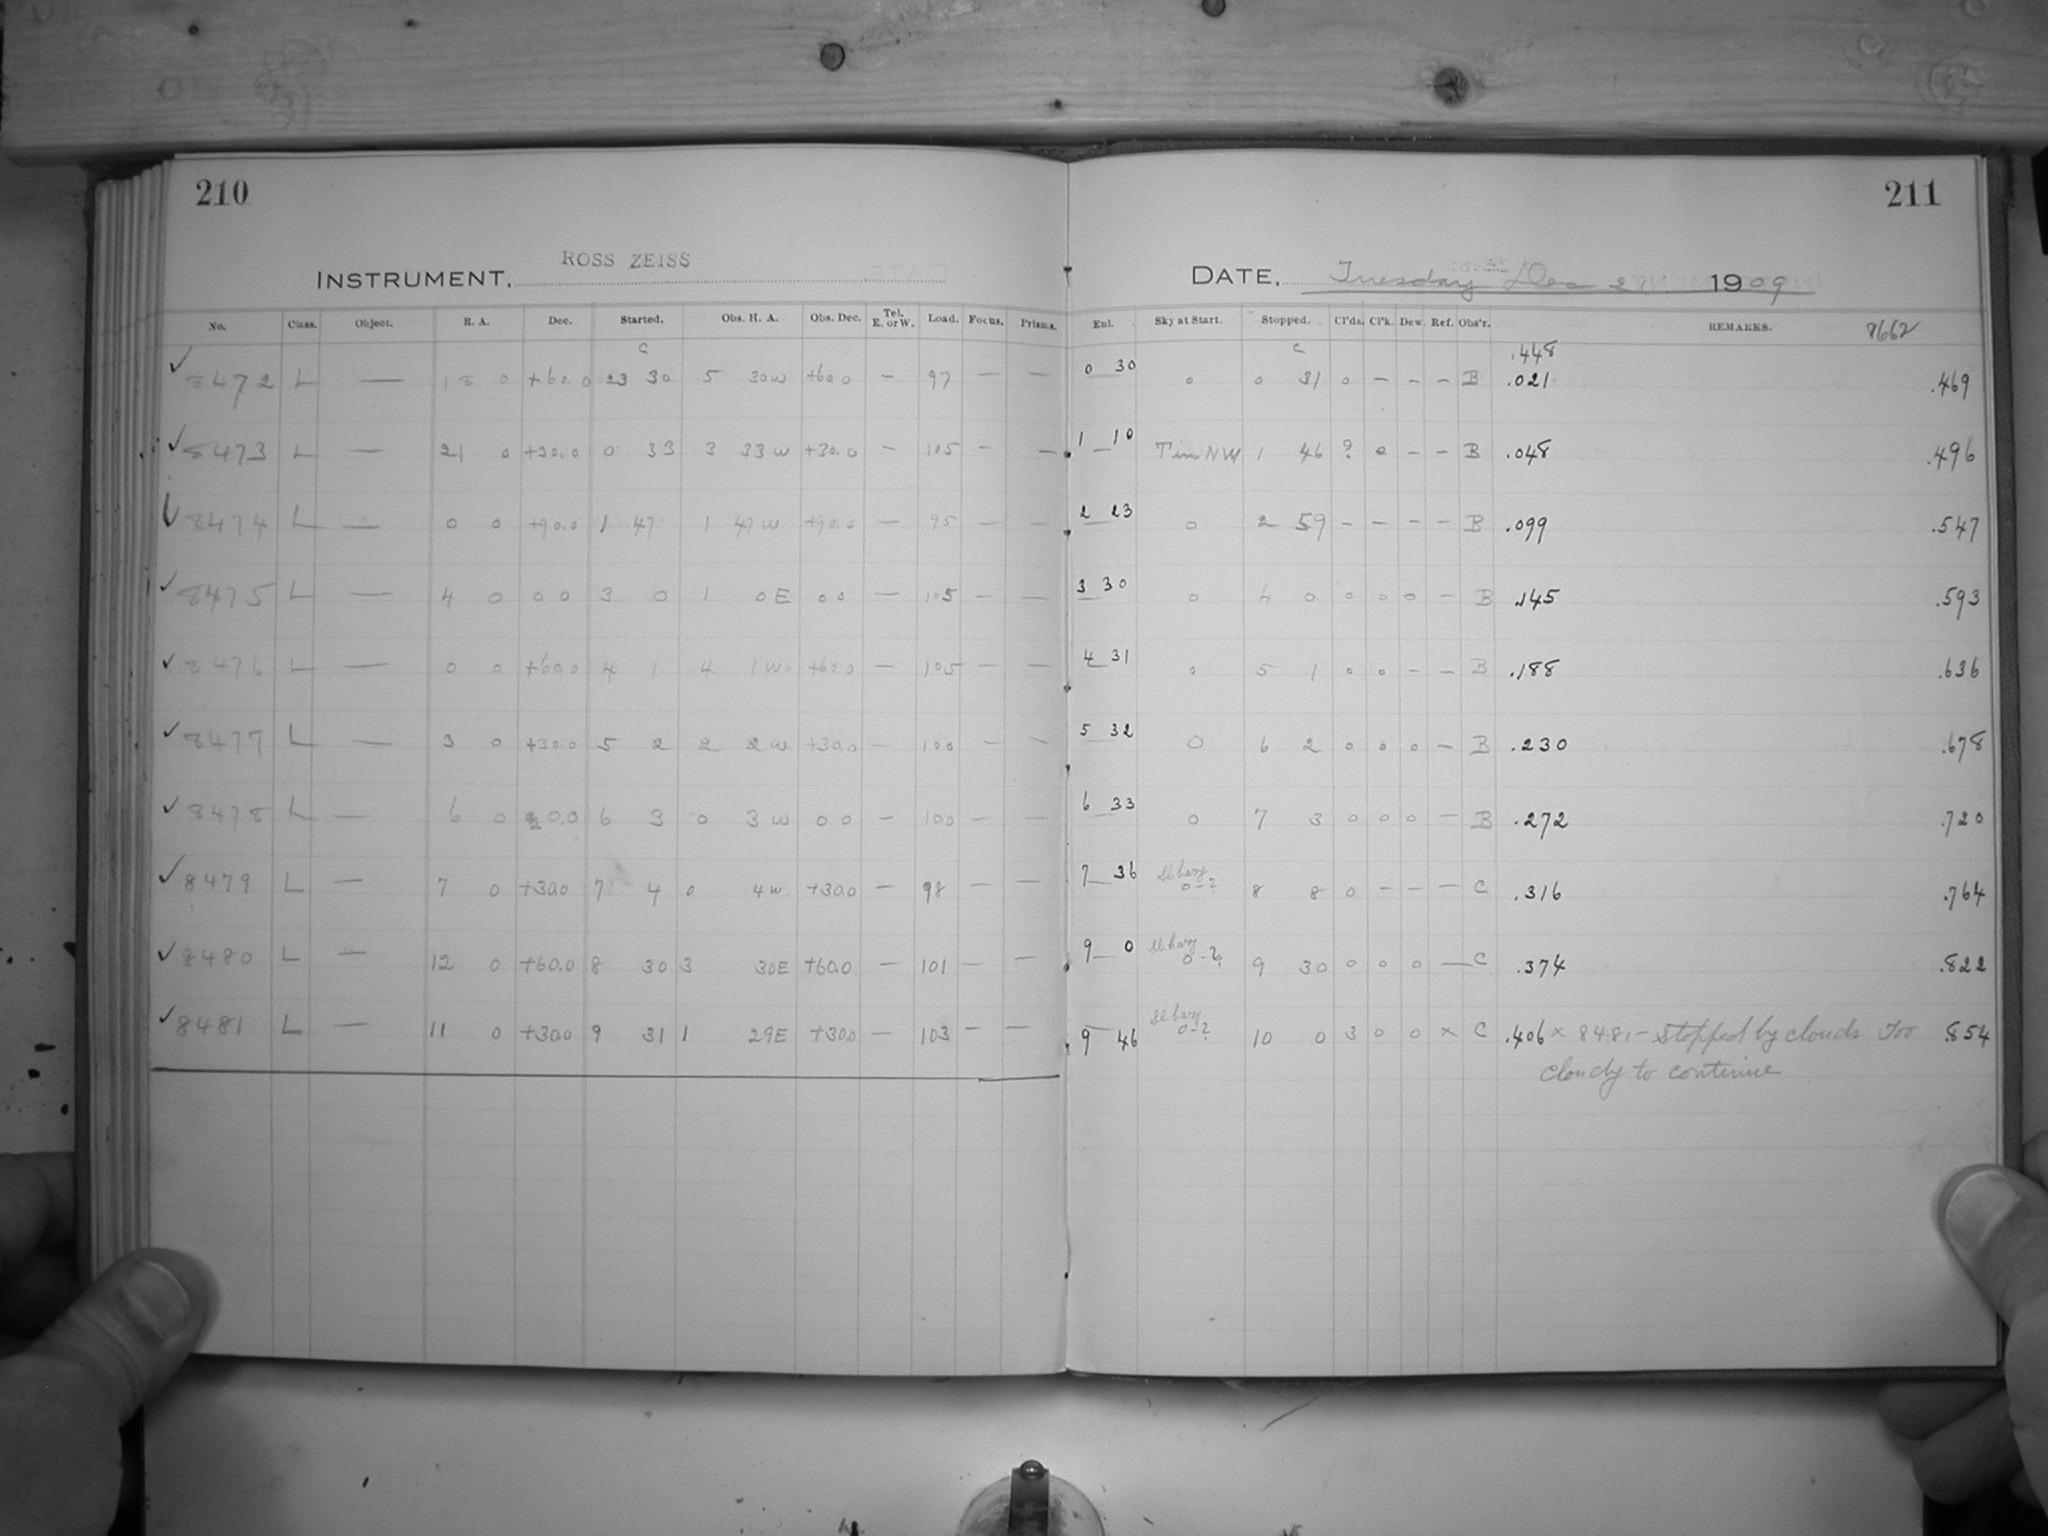 210
211
INSTRUMENT, ROSS ZEISS
DATE, Tuesday Dec 1909
No. Class. Object. R. A. Dec. Started. Obs. H. A. Obs. Dec. Tel. E. or W. Load. Focus. Prisms. Enl. Sky at Start. Stopped. Cl'ds. Cl'k. Dew. Ref. Obs'r. REMARKS. 8662
C C .448
✓ 8472 L — 18 0 +60.0 23 30 5 30W +60.0 — 97 — — 0 30 0 0 31 0 — — — B .021 .469
✓ 8473 L — 21 0 +30.0 0 33 3 33W +30.0 — 105 — — 1 10 T in NW 1 46 ? 0 — — B .048 .496
✓ 8474 L — 0 0 +90.0 1 47 1 47W +90.0 — 95 — — 2 23 0 2 59 — — — — B .099 .547
✓ 8475 L — 4 0 0 0 3 0 1 0E 0 0 — 105 — — 3 30 0 4 0 0 0 0 — B .145 .593
✓ 8476 L — 0 0 +60.0 4 1 4 1W +60.0 — 105 — — 4 31 0 5 1 0 0 — — B .188 .636
✓ 8477 L — 3 0 +30.0 5 2 2 2W +30.0 — 100 — — 5 32 0 6 2 0 0 0 — B .230 .678
✓ 8478 L — 6 0 0.0 6 3 0 3W 0 0 — 100 — — 6 33 0 7 3 0 0 0 — B .272 .720
✓ 8479 L — 7 0 +30.0 7 4 0 4W +30.0 — 98 — — 7 36 Sl. hazy 0-? 8 8 0 — — — C .316 .764
✓ 8480 L — 12 0 +60.0 8 30 3 30E +60.0 — 101 — — 9 0 Sl. hazy 0-? 9 30 0 0 0 — C .374 .822
✓ 8481 L — 11 0 +30.0 9 31 1 29E +30.0 — 103 — — 9 46 Sl. hazy 0-? 10 0 3 0 0 × C .406 × 8481 — Stopped by clouds. Too .854
cloudy to continue